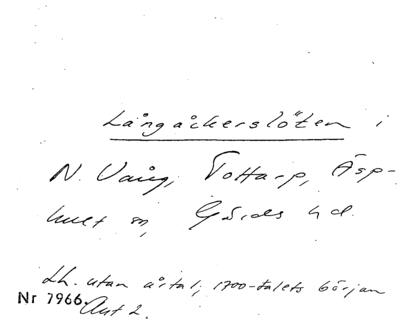 Långåckerslöten i
N. Vång, Tottarp, Äsp-
hult sn, Gärds hd.
Lh. utan årtal; 1700-talets början
Nr 7966. Aut 2.